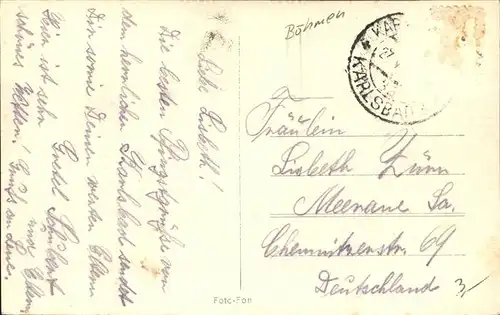 Liebe Lisbeth!
Die besten Pfingstgrüße von
dem herrlichen Karlsbad sendet
Dir sowie Deinen werten Eltern
Gretel Schubert
und Eltern.
Hier ist sehr
schönes Wetter!
Böhmen
KARLSBAD
Fräulein
Lisbeth Zürn
Meerane Sa.
Chemnitzerstr. 69
Deutschland
3,-
Foto-Fon